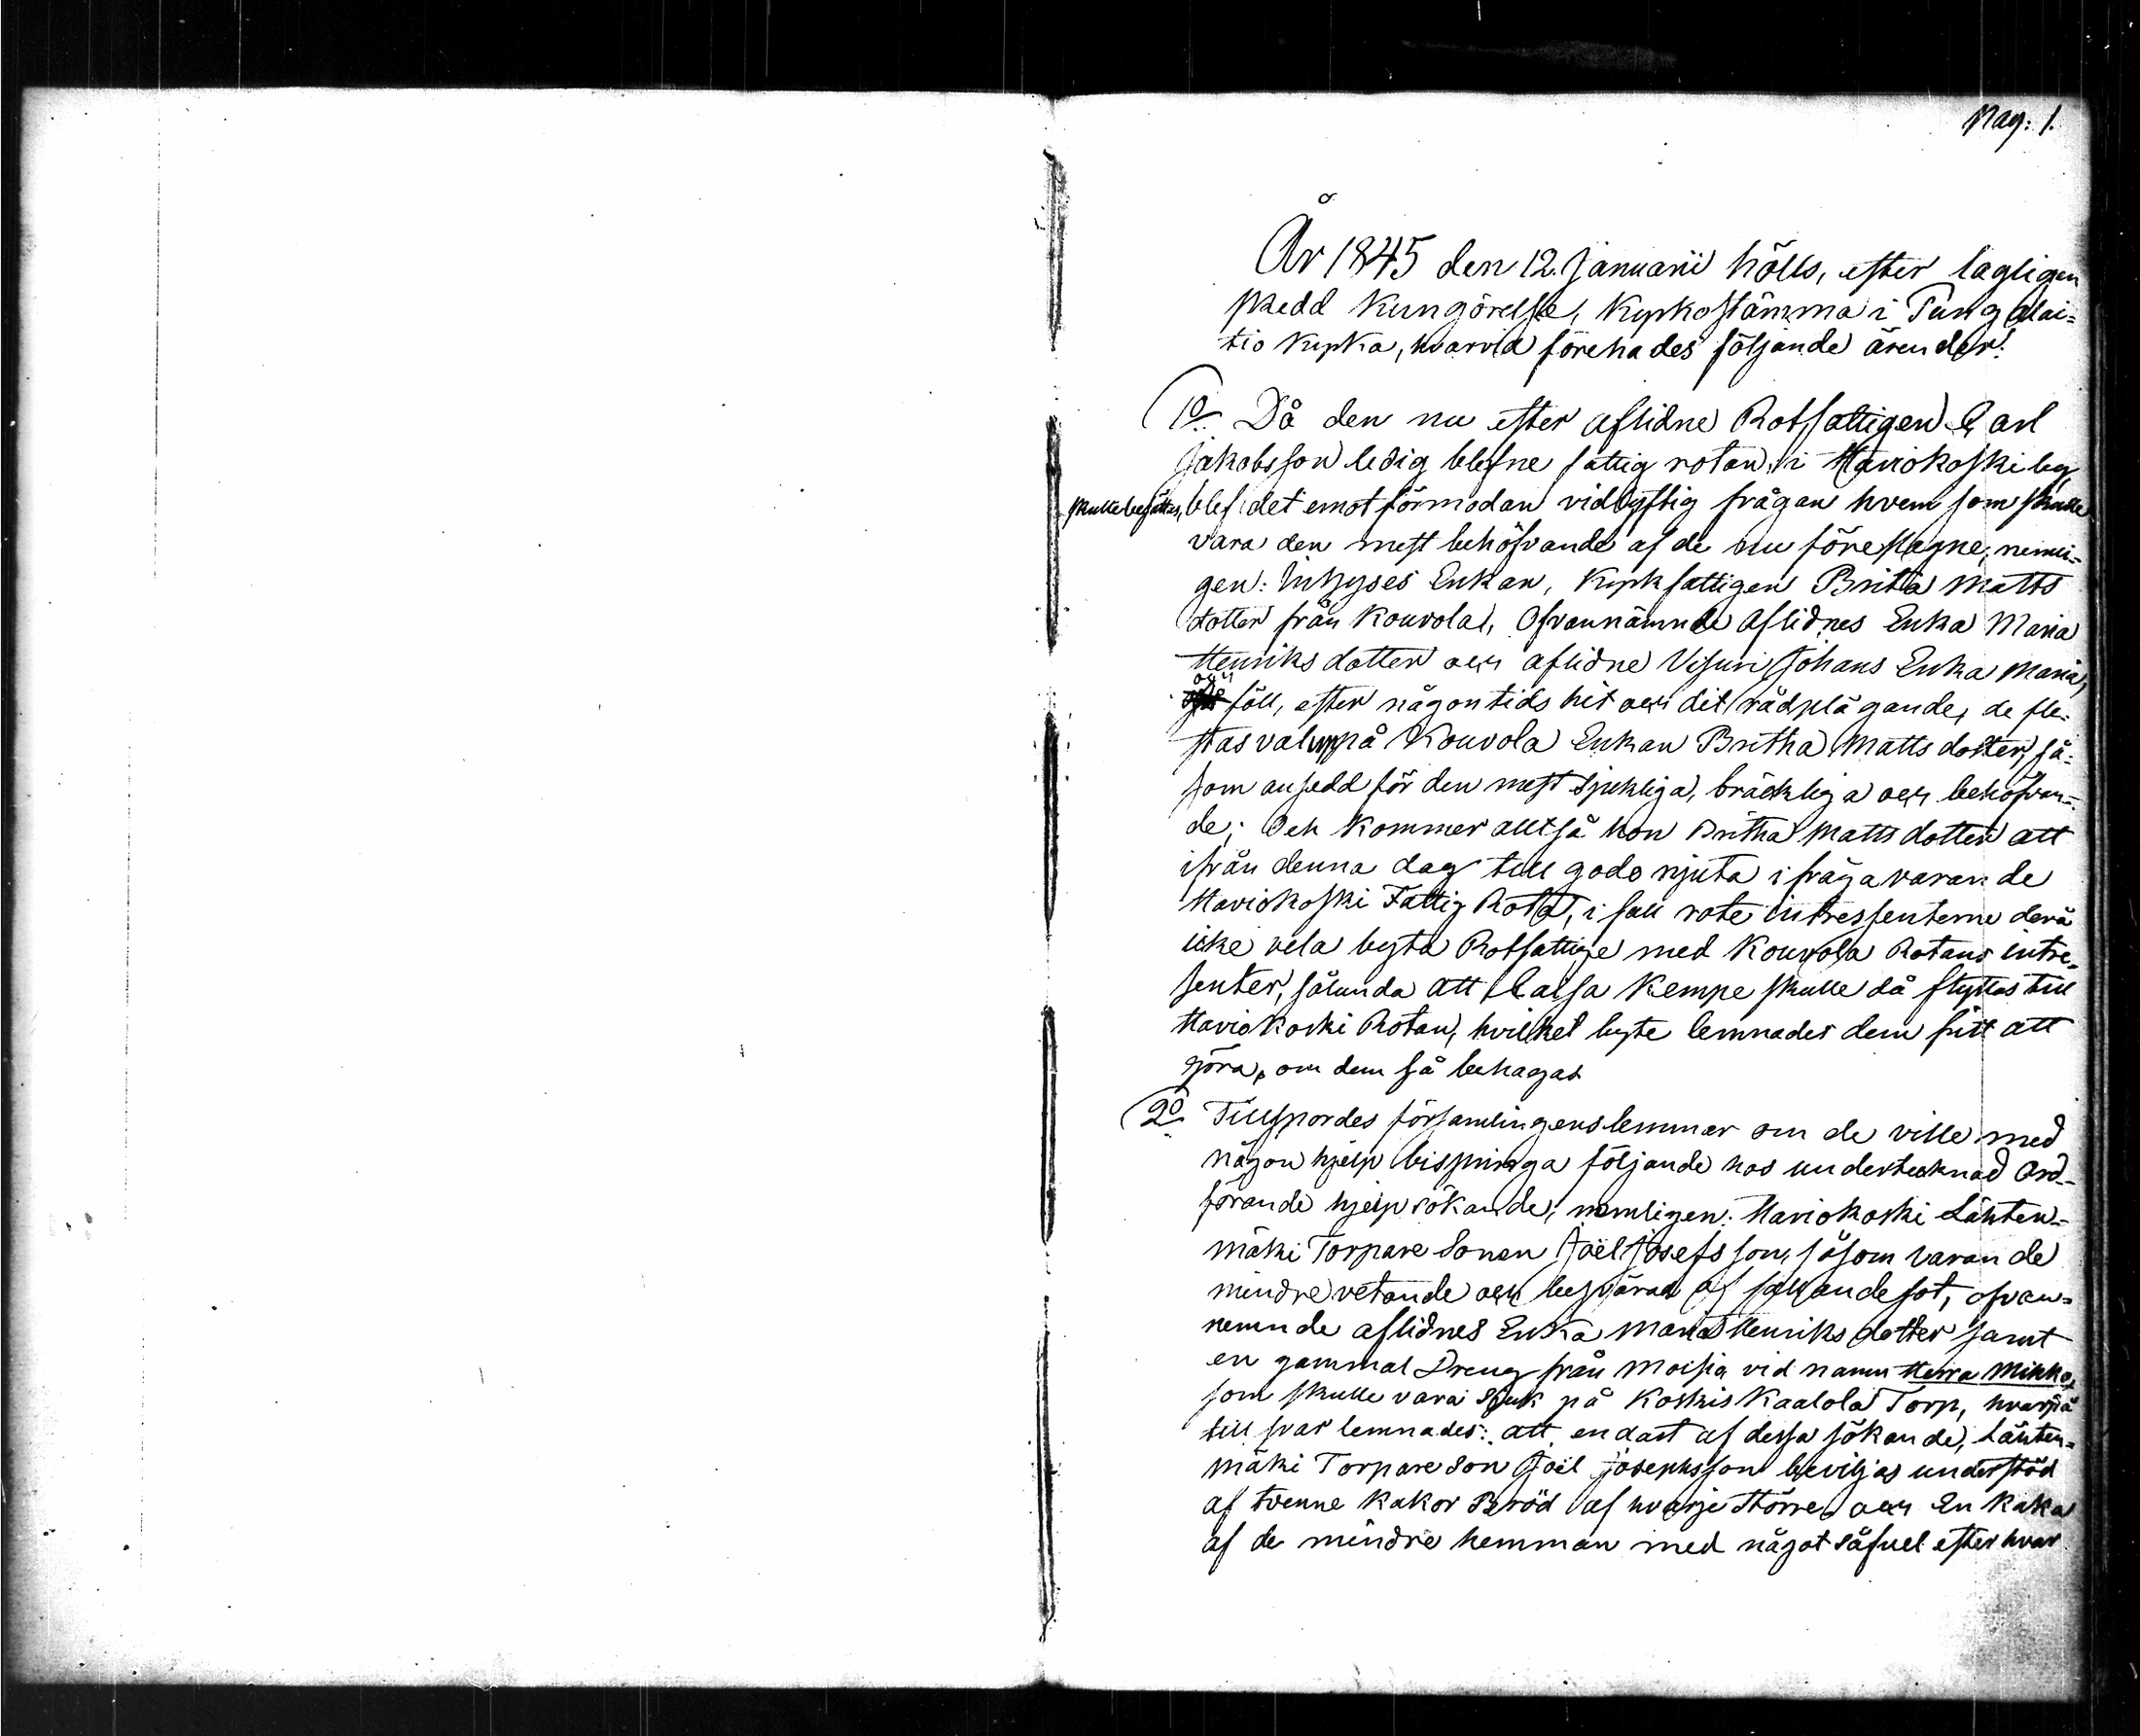 Pag: 1.
År 1845 den 12. Januarii hölls, efter lagligen
skedd Kungörelse, Kyrkostämma i Pungalai-
tio Kyrka, hvarvid förehades följande ärender:
1o Då den nu efter aflidne Rotfattigen Carl
Jakobsson ledig blefne fattig rotan, i Haviokoski by
skulle besättas, blef det emot förmodan vidlyftig frågan hvem som skulle
vara den mest behöfvande af de nu föreslagne, nemli-
gen: Inhyses Enkan, Kyrkfattigen Britta Matts
dotter från Kouvola, Ofvannämnde Aflidnes Enka Maria
Henriks dotter och aflidne Visuri Johans Enka Maria,
och föll, efter någon tids hit och dit rådplägande, de fle-
stas val uppå Kouvola Enkan Britha Matts dotter, så-
som ansedd för den mest sjukliga, bräckliga och behöfvan-
de; Och kommer alltså hon Britha Matts dotter att
ifrån denna dag till godo njuta i fråga varande
Haviokoski Fattig Rota, i fall rote intressenterne derå
icke vela byta Rotfattige med Kouvola Rotans intre-
senter, sålunda att Caisa Kempe skulle då flyttas till
Haviokoski Rotan, hvilket byte lemnades dem fritt att
göra, om dem så behagas.
2o Tillspordes församlingens lemmar om de ville med
någon hjelp bispringa följande hos undertecknad Ord-
förande hjelpsökande, nemligen: Haviokoski Lähten-
mäki Torpare Sonen Joël Josefsson, såsom varande
mindre vetande och besvärad af fallandesot, ofvan-
nemnde aflidnes Enka Maria Henriks dotter samt
en gammal Dreng från Moisia vid namn Herra Mikko,
som skulle vara Sjuk på Koskis Kaalola Torp, hvarpå
till svar lemnades: att endast af dessa sökande, Lähten-
mäki Torpare Son Joël Josephsson beviljas understöd
af tvenne kakor Bröd af hvarje större och En Kaka
af de mindre hemman med något såfvel efter hvar